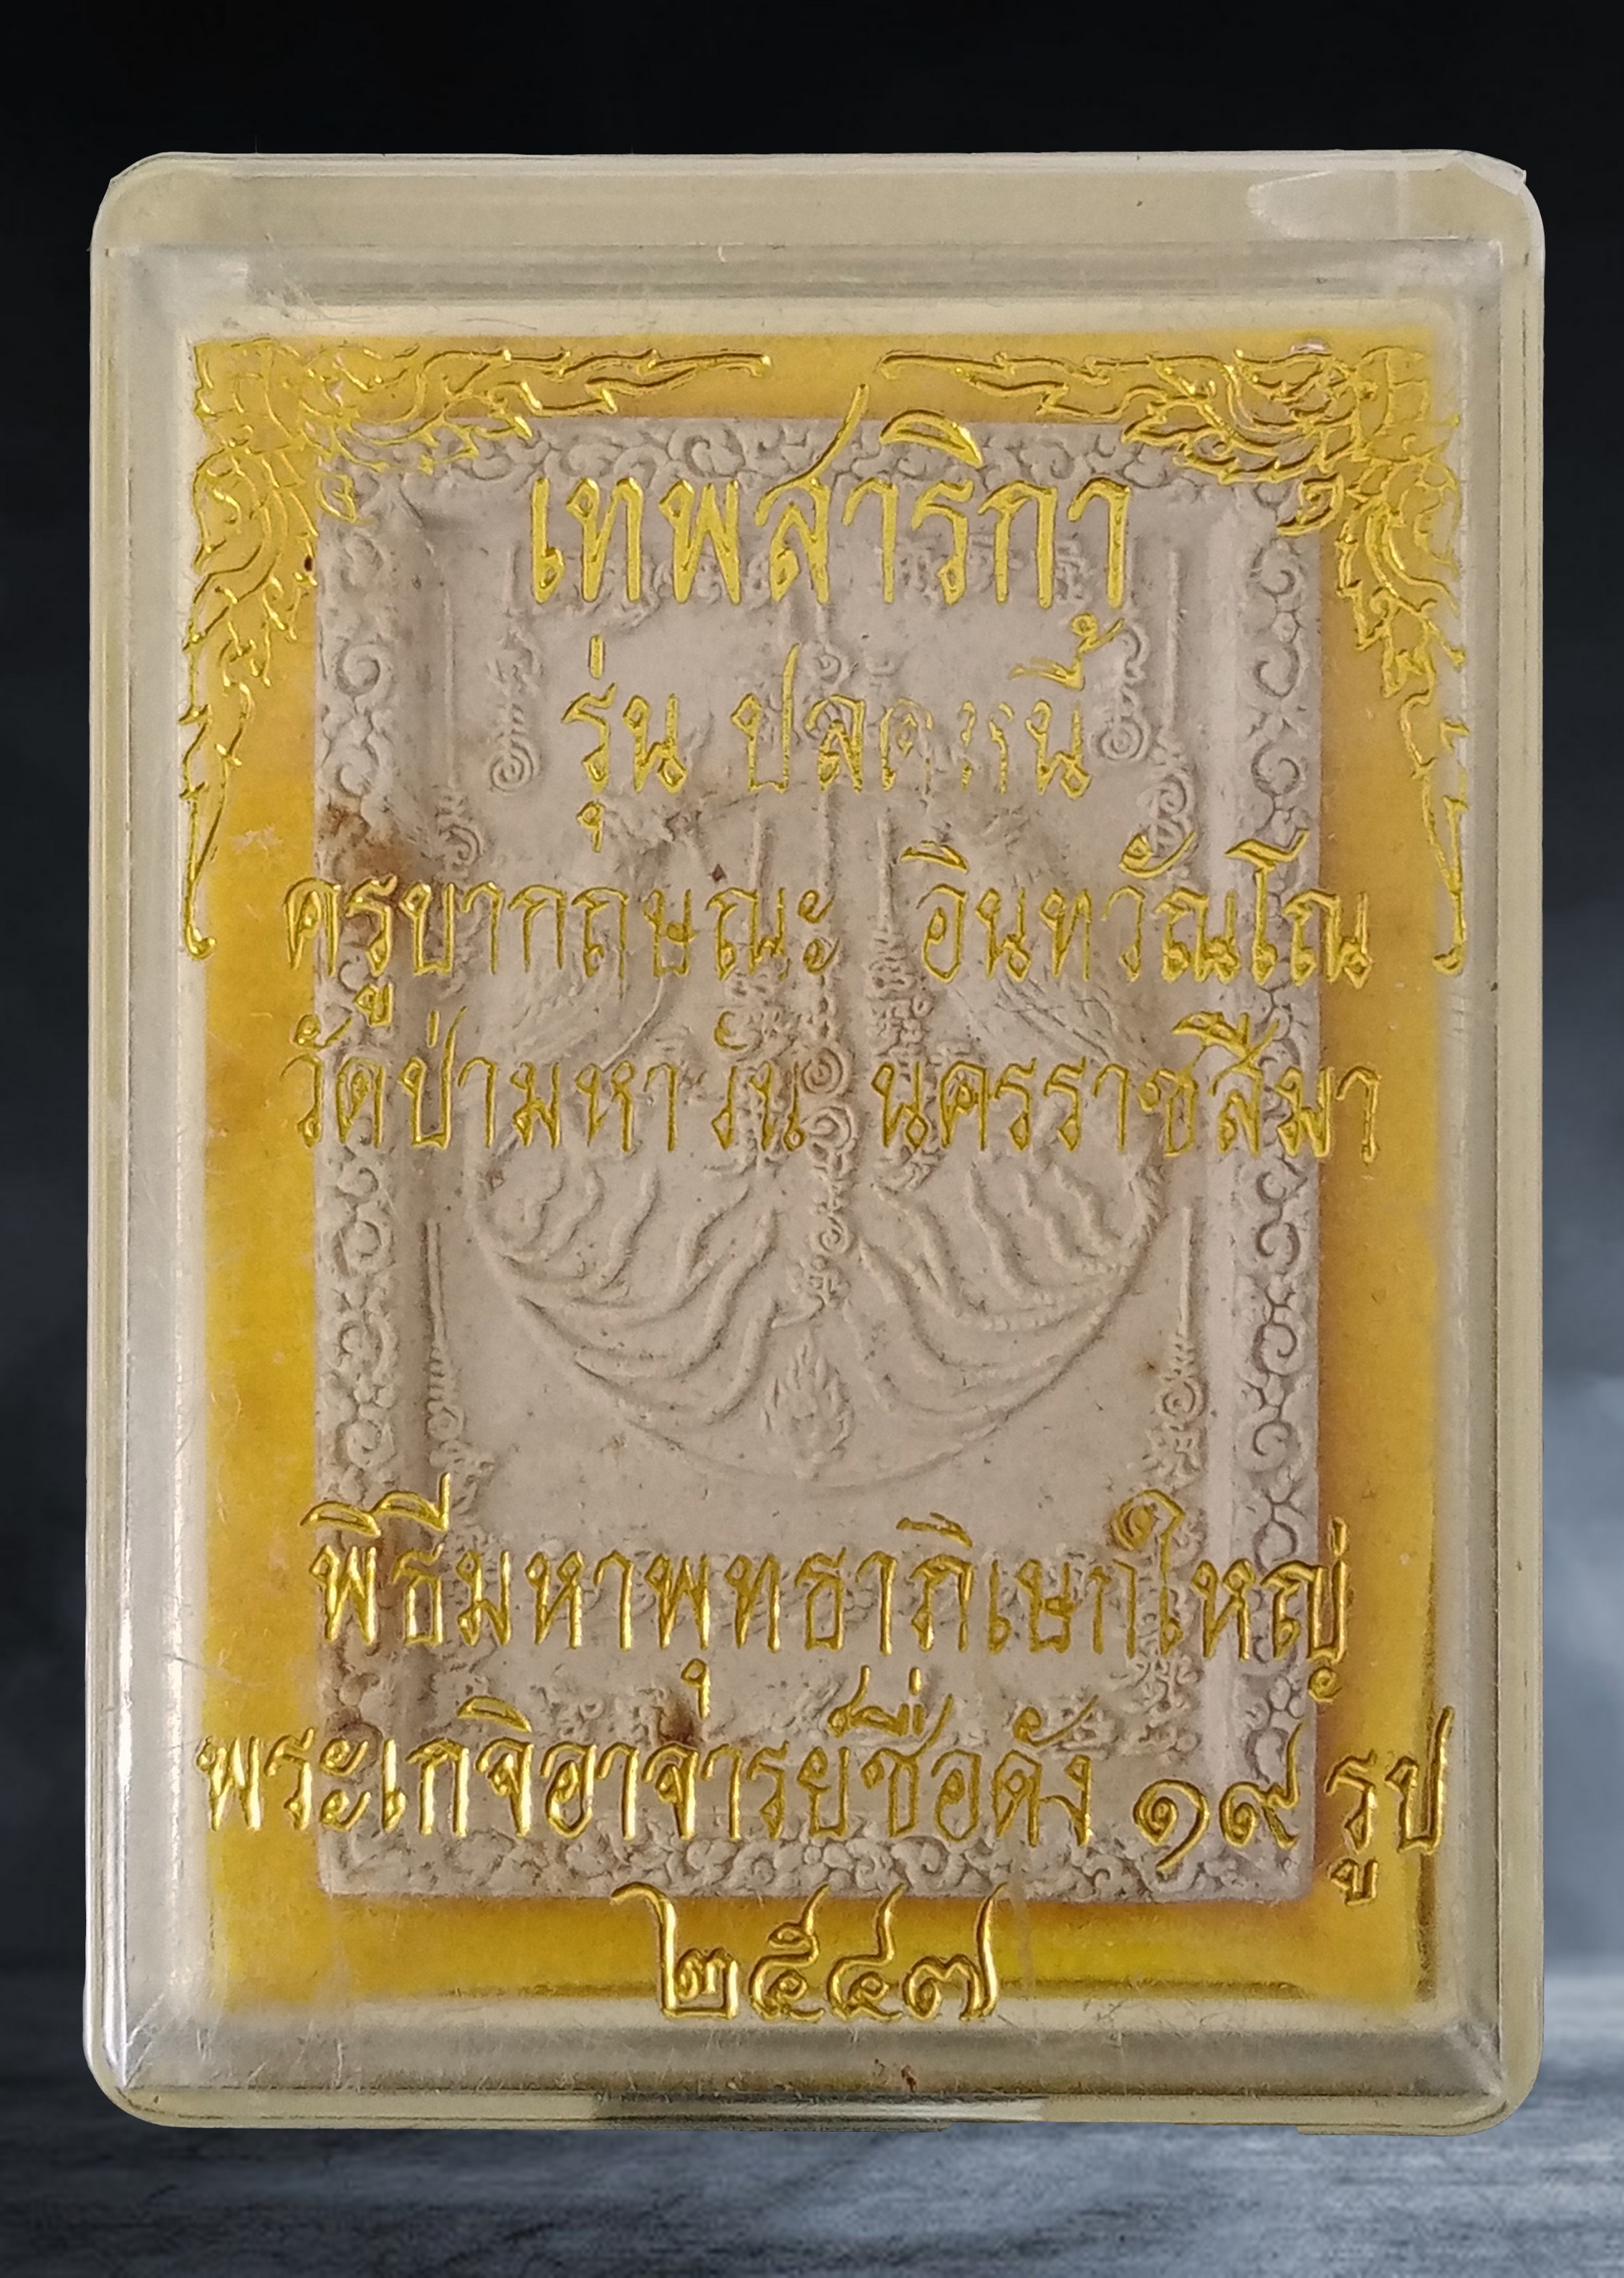 เทพสาริกา
รุ่น ปลดหนี้
ครูบากฤษณะ อินทวัณโณ
วัดป่ามหาวัน นครราชสีมา
พิธีมหาพุทธาภิเษกใหญ่
พระเกจิอาจารย์ชื่อดัง ๑๙ รูป
๒๕๔๗